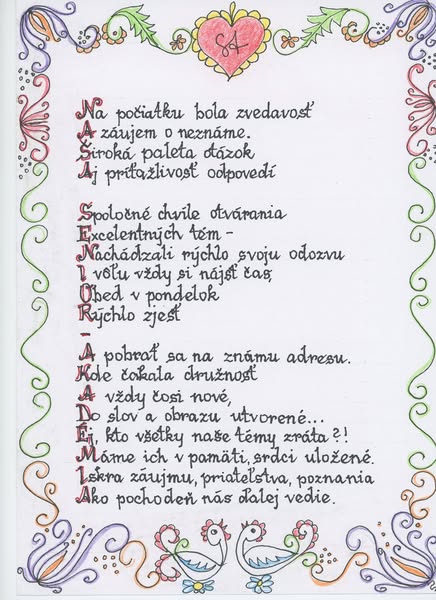 SA
Na počiatku bola zvedavosť
A záujem o neznáme.
Široká paleta otázok
Aj príťažlivosť odpovedí
Spoločné chvíle otvárania
Excelentných tém -
Nachádzali rýchlo svoju odozvu
I vôľu vždy si nájsť čas,
Obed v pondelok
Rýchlo zjesť
-
A pobrať sa na známu adresu.
Kde čakala družnosť
A vždy čosi nové,
Do slov a obrazu utvorené...
Ej, kto všetky naše témy zráta?!
Máme ich v pamäti, srdci uložené.
Iskra záujmu, priateľstva, poznania
Ako pochodeň nás ďalej vedie.